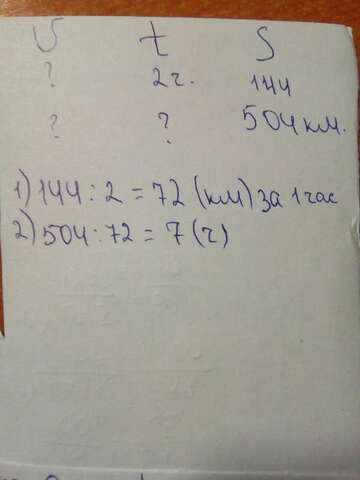 V t S
? 2ч. 144
? ? 504км.
1) 144 : 2 = 72 (км) за 1 час
2) 504 : 72 = 7 (ч)